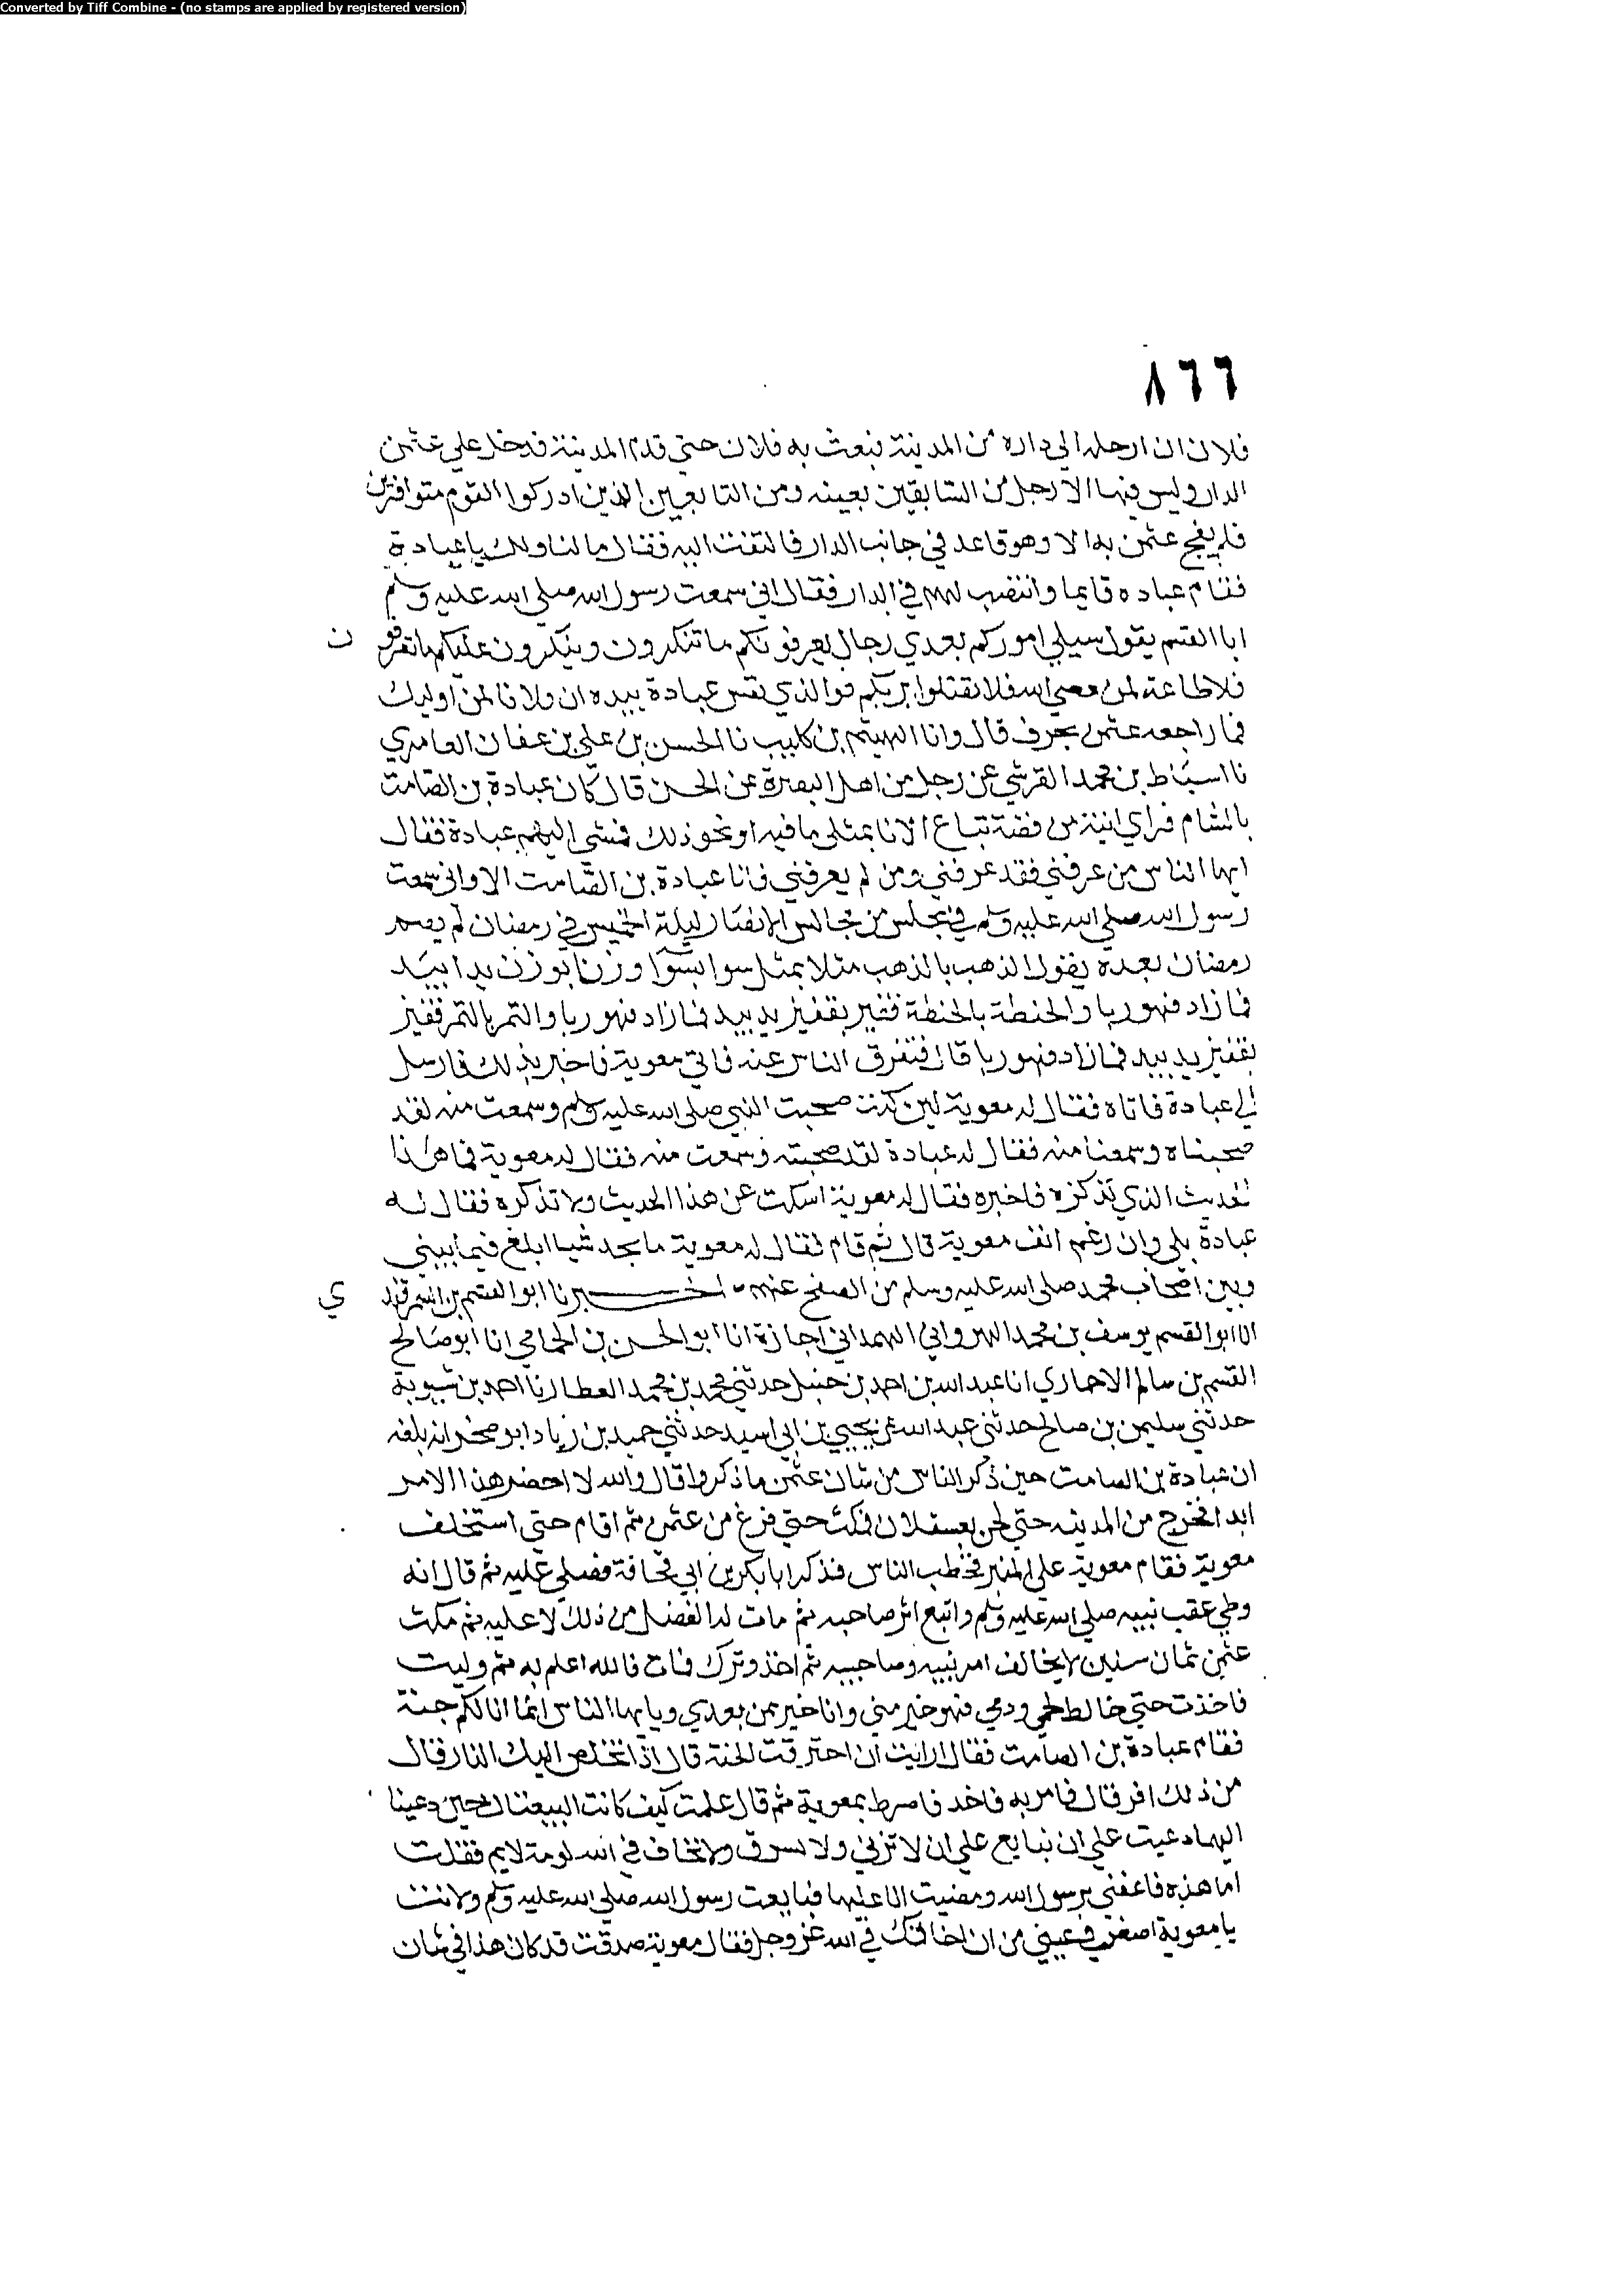 Converted by Tiff Combine - (no stamps are applied by registered version)
٨٦٦
فلان ان ارحله الي داره من المدينة فبعث به فلان حتي قدم المدينة فدخل علي عثمن
الدار وليس فيها الا رجل من السابقين بعينه ومن التابعين الذين ادركوا القوم متوافرين
فلم يفج عثمن به الا وهو قاعد في جانب الدار فالتفت اليه فقال ما لنا ولك يا عبادة
فقام عباده قايما وانتصب لهم في الدار فقال اني سمعت رسول الله صلي الله عليه وسلم
ابا القسم يقول سيلي اموركم بعدي رجال يعرفونكم ما تنكرون وينكرون عليكم ما تعرفون
فلا طاعة لمن عصي الله فلا تقتلوا بربكم فوالذي نفس عبادة بيده ان فلانا لمن اوليك
فما راجعه عثمن بحرف قال وانا الهيثم بن كليب نا الحسن بن علي بن عفان العامري
نا اسباط بن محمد القرشي عن رجل من اهل البصرة عن الحسن قال كان عبادة بن الصامت
بالشام فراي انية من فضة تباع الانا بمثلي ما فيه او نحو ذلك فمشي اليهم عبادة فقال
ايها الناس من عرفني فقد عرفني ومن لم يعرفني فانا عبادة بن الصامت الا واني سمعت
رسول الله صلي الله عليه وسلم في مجلس من مجالس الانصار ليلة الخميس في رمضان لم يصم
رمضان بعده يقول الذهب بالذهب مثلا بمثل سوا بسوا وزنا بوزن يدا بيد
فما زاد فهو ربا والحنطة بالحنطة قفيز بقفيز يد بيد فما زاد فهو ربا والتمر بالتمر قفيز
بقفيز يد بيد فما زاد فهو ربا قال فتفرق الناس عنه فاتي معوية فاخبر بذلك فارسل
الي عبادة فاتاه فقال له معوية لين كنت صحبت النبي صلي الله عليه وسلم وسمعت منه لقد
صحبناه وسمعنا منه فقال له عبادة لقد صحبته وسمعت منه فقال له معوية فما هذا
الحديث الذي تذكره فاخبره فقال له معوية اسكت عن هذا الحديث ولا تذكره فقال له
عبادة بلي وان رغم انف معوية قال ثم قام فقال له معوية ما نجد شيا ابلغ فيما بيني
وبين اصحاب محمد صلي الله عليه وسلم من الصفح عنهم اخبرنا ابو القسم بن السمرقندي
انا ابو القسم يوسف بن محمد المهرواني الهمداني اجازة انا ابو الحسن بن الحمامي انا ابو صالح
القسم بن سالم الاخباري انا عبد الله بن احمد بن حنبل حدثني محمد بن محمد العطار نا احمد بن شبوية
حدثني سليمن بن صالح حدثني عبد الله عن يحيي بن ابي اسيد حدثني حميد بن زياد ابو صخر انه بلغه
ان عبادة بن الصامت حين ذكر الناس من شان عثمن ما ذكروا قال والله لا احضر هذا الامر
ابدا فخرج من المدينه حتي لحق بعسقلان فمكث حتي فرغ من عثمن ثم اقام حتي استخلف
معوية فقام معوية علي المنبر فخطب الناس فذكر ابا بكر بن ابي قحافة فصلي عليه ثم قال انه
وطي عقب نبيه صلي الله عليه وسلم واتبع اثر صاحبه ثم مات له الفضل من ذلك لا عليه ثم مكث
عثمن ثمان سنين لا يخالف امر نبيه وصاحبيه ثم اخذ وترك فمات فالله اعلم به ثم وليت
فاخذت حتي خالط لحمي ودمي فهو خير مني وانا خير ممن بعدي ويايها الناس انما انا لكم جنة
فقام عبادة بن الصامت فقال ارايت ان احترقت الجنة قال اذا تخلص اليك النار قال
من ذلك افر قال فامر به فاخذ فاضرط بمعوية ثم قال علمت كيف كانت البيعتان حين دعينا
اليها دعيت علي ان نبايع علي ان لا نزني ولا نسرق ولا نخاف في الله لومة لايم فقلت
اما هذه فاعفني يرسول الله ومضيت انا عليها فبايعت رسول الله صلي الله عليه وسلم ولانت
يا معوية اصغر في عيني من ان اخافك في الله عز وجل فقال معوية صدقت قد كان هذا في شان